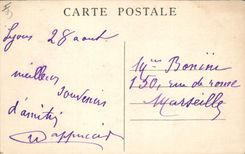 CARTE POSTALE
Lyon 28 aout
meilleurs
souvenirs
d'amitié
Mme Bonini
150, rue de rome
Marseille